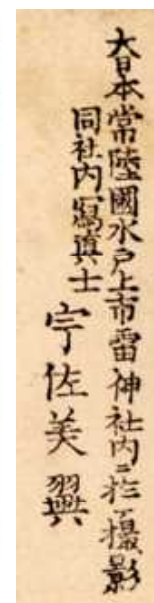 大日本常陸國水戸上市雷神社内ニ於テ撮影
同社内寫真士
宇佐美翼